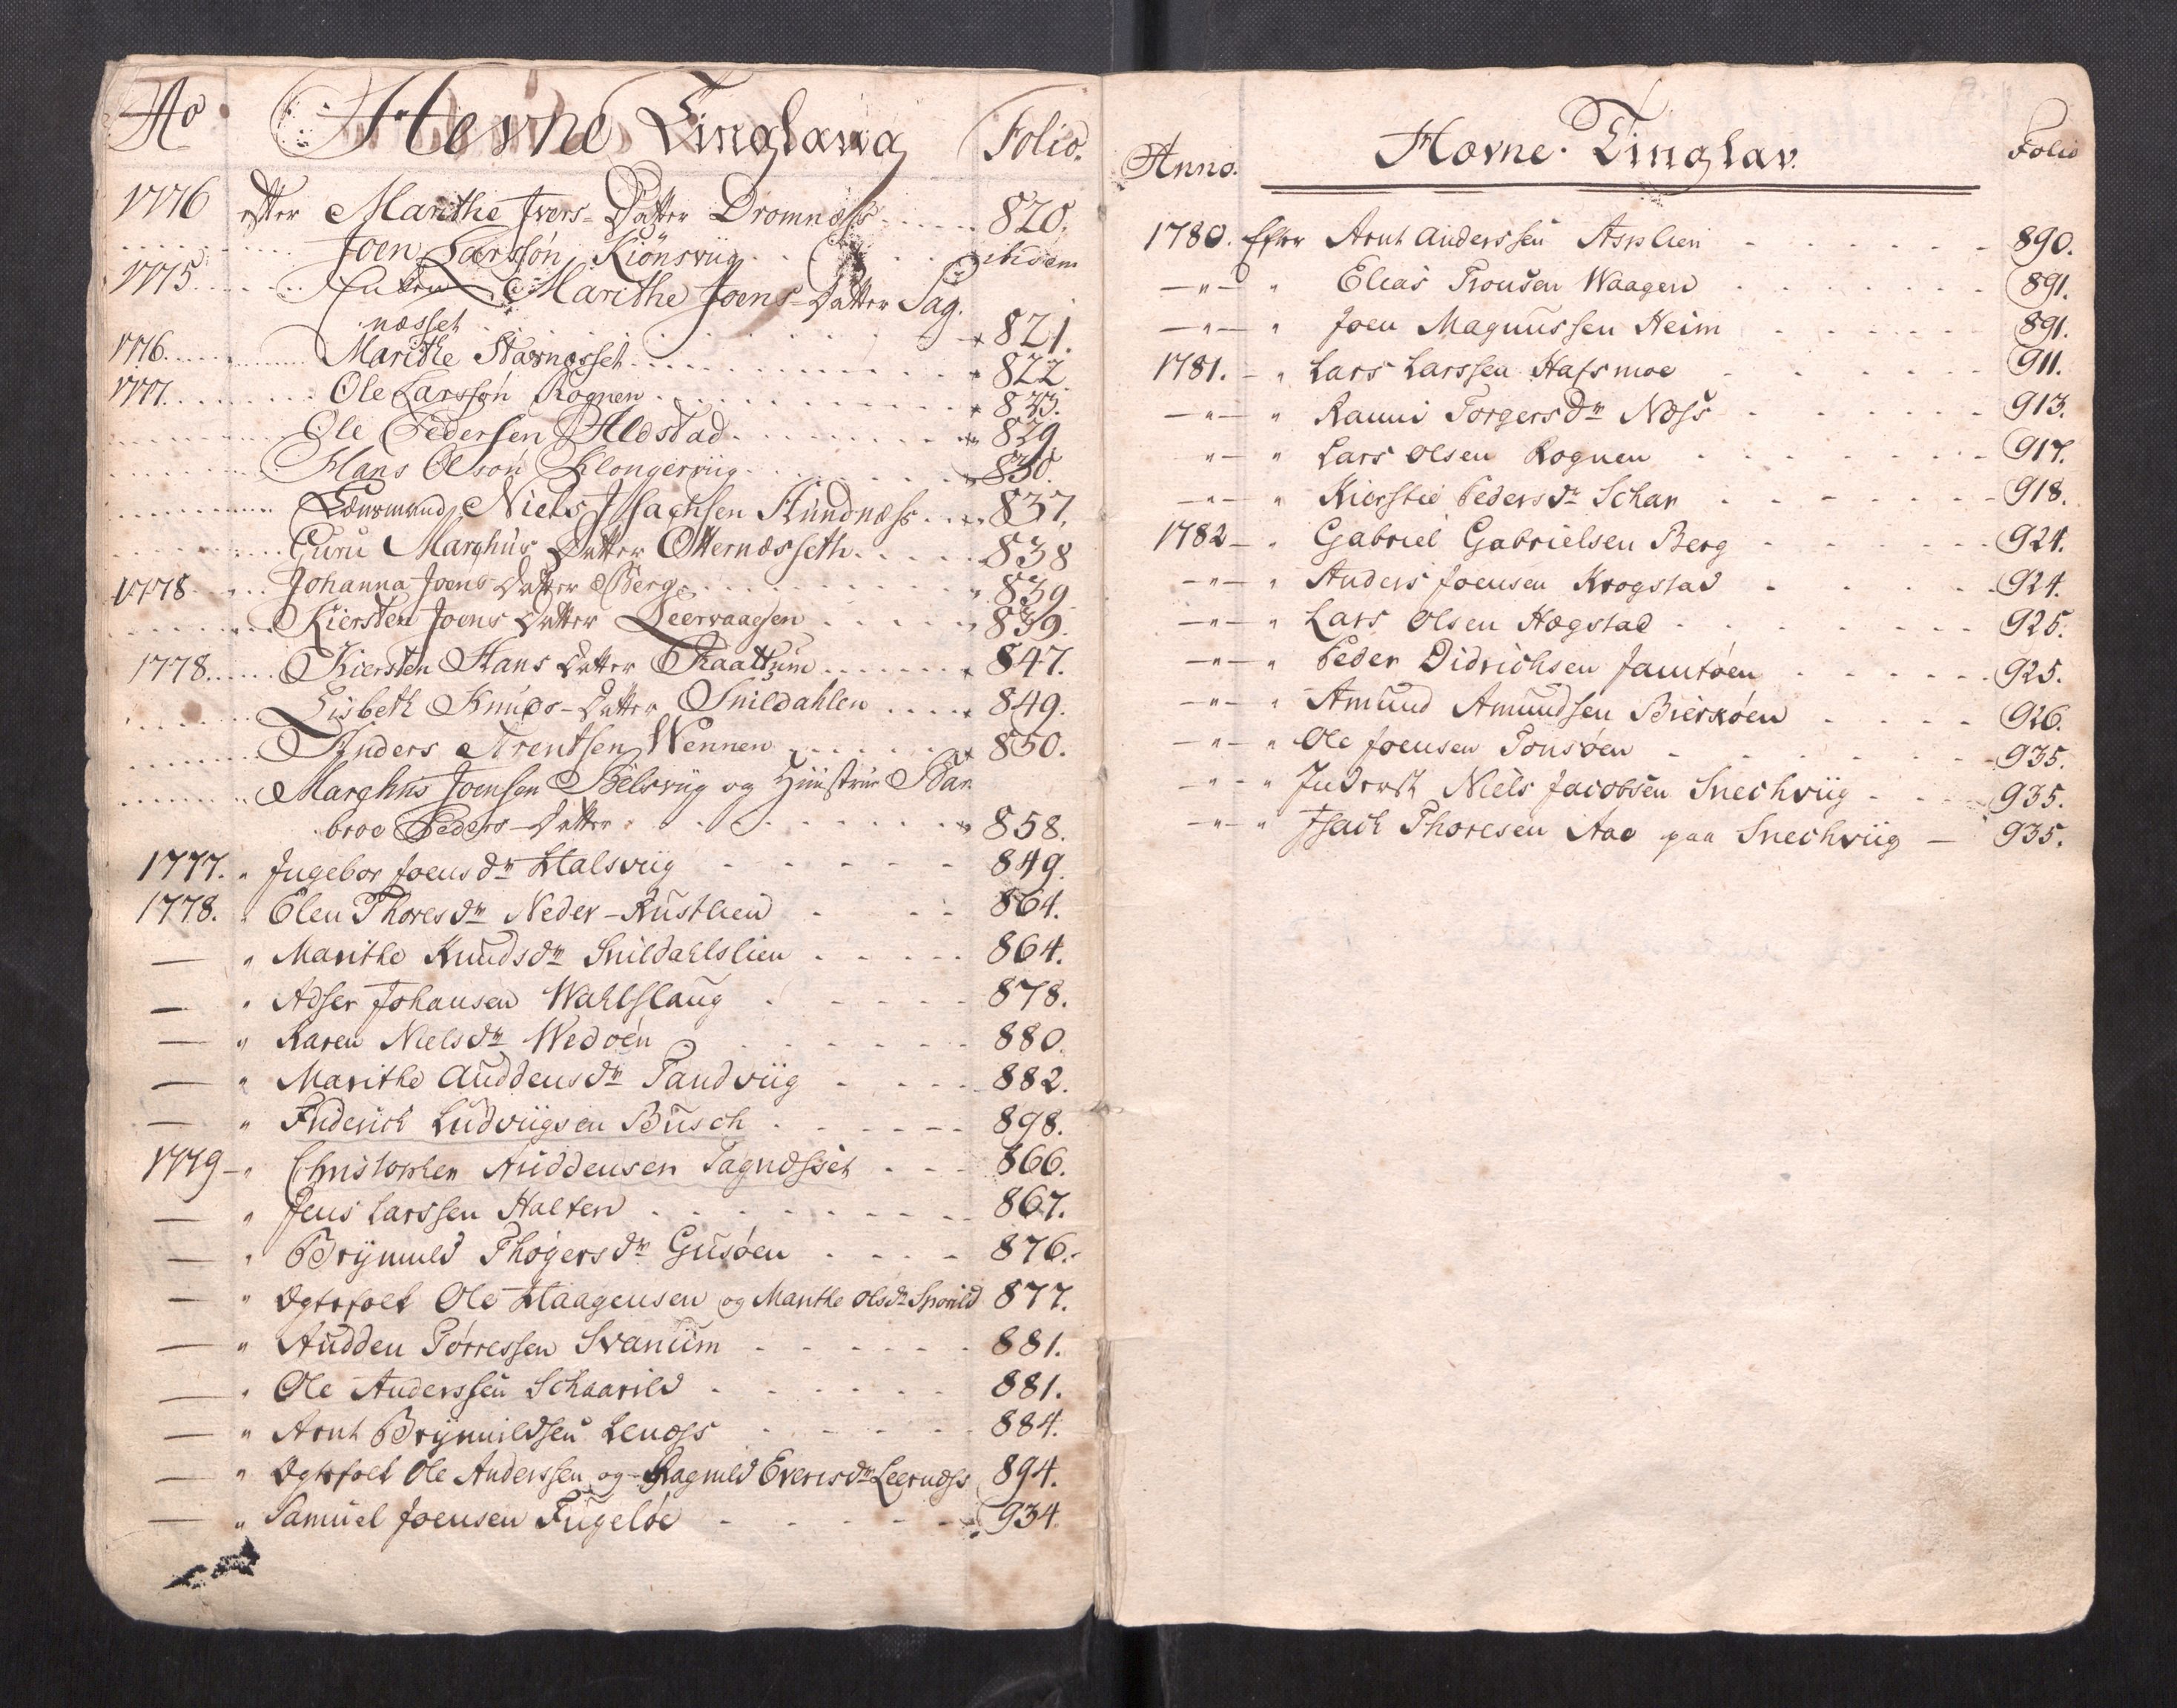 Ao Hevne Tinglaug Folio.
1776 efter Marithe Ivers-Datter Dromnæss 820.
Joen Larssøn Kiønsviig ibidem
1775 Enken Marithe Joens-Datter Sag.
næsset 821.
1776. Marithe Stavnæsset 822.
1777. Ole Larssøn Rognen 823.
Ole Pedersen Aldstad 829.
Hans Olsøn Klongerviig 830.
Lænsmand Niels Isachsen Hundnæss 837.
Guru Marchus Datter Otternæsseth 838
1778 Johanna Joens Datter Berg 839
Kiersten Joens Datter Leervaagen 839.
1778. Kiersten Hans Datter Taattum 847.
Lisbeth Knuds-Datter Snildahlen 849.
Anders Arentsen Wennen 850.
Marchus Joensen Belsviig og Hustrue Bar
broe Peders-Datter 858.
1777. " Ingebor Joensdr Halsviig 849.
1778. " Elen Thoresdr Neder-Rustlien 864.
— " Marithe Knudsdr Snildahlslien 864.
— " Adser Johansen Wahlslaug 878.
— " Karen Nielsdr Wedøen 880.
— " Marithe Auddensdr Tandviig 882.
— " Friderich Ludviigsen Busch 898.
1779 — " Christopher Auddensen Sagnæsset 866.
— " Jens Larssen Halten 867.
— " Brynnild Thøgersdr Gusøen 876.
— " Ægtefolk Ole Haagensen og Marithe Olsdr 877.
— " Audden Tørressen Svanum 881.
— " Ole Anderssen Schaarild 881.
— " Arnt Brynnildsen Lenæss 884.
— " Ægtefolk Ole Anderssen og Ragnild Evertsdr Leernæss 894.
— " Samuel Joensen Fugeløe 934.
Anno. Hævne Tinglav. Folio
1780. Efter Arnt Anderssen Asplien 890.
—"— " Elias Tronsen Waagen 891.
—"— " Joen Magnussen Heim 891.
1781. — " Lars Larssen Hafsmoe 911.
—"— " Ranni Torgersdr Næss 913.
"— " Lars Olsen Rognen 917.
—"— " Kierstie Pedersdr Schar 918.
1782 — " Gabriel Gabrielsen Berg 924.
—"— " Anders Joensen Krogstad 924.
—"— " Lars Olsen Hægstad 925.
—"— " Peder Didrichsen Jamtøen 925.
—"— " Amund Amundsen Bierkøen 926.
—"— " Ole Joensen Tonsøen 935.
—"— " Inderst Niels Jacobsen Snechviig 935.
—"— " Isach Thoresen Aae paa Snechviig — 935.